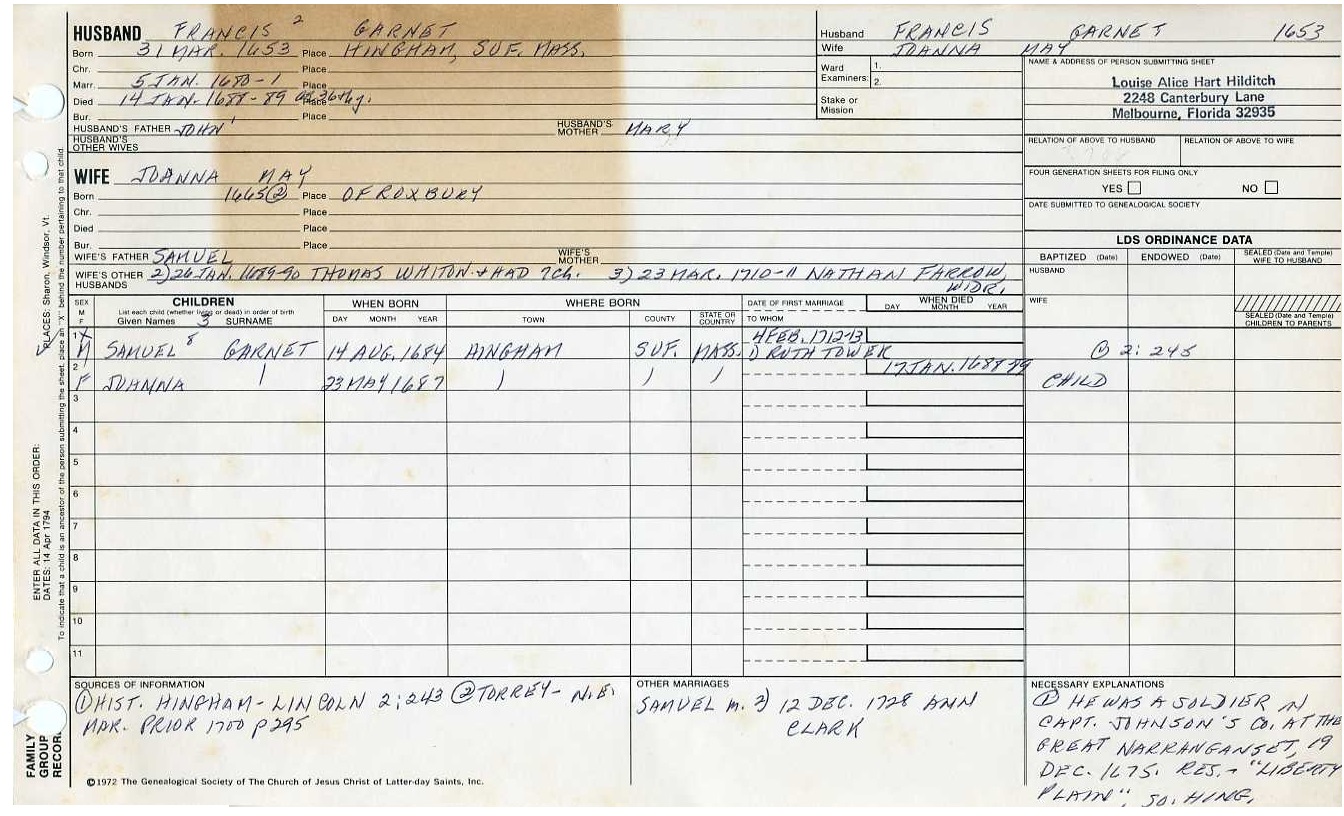 HUSBAND FRANCIS 2 GARNET
Born 31 MAR. 1653 Place HINGHAM, SUF. MASS.
Chr. Place
Marr. 5 JAN. 1680-1 Place
Died 14 JAN. 1688-89 Place
Bur. Place
HUSBAND'S FATHER JOHN 1 HUSBAND'S MOTHER MARY
HUSBAND'S OTHER WIVES
WIFE JOANNA MAY
Born 1665 ② Place OF ROXBURY
Chr. Place
Died Place
Bur. Place
WIFE'S FATHER SAMUEL WIFE'S MOTHER
WIFE'S OTHER HUSBANDS 2) 26 JAN. 1689-90 THOMAS WHITON + HAD 7 ch. 3) 23 MAR. 1710-11 NATHAN FARROW, WIDR.
Husband FRANCIS GARNET 1653
Wife JOANNA MAY
Ward 1.
Examiners: 2.
Stake or Mission
NAME & ADDRESS OF PERSON SUBMITTING SHEET
Louise Alice Hart Hilditch
2248 Canterbury Lane
Melbourne, Florida 32935
RELATION OF ABOVE TO HUSBAND RELATION OF ABOVE TO WIFE
FOUR GENERATION SHEETS FOR FILING ONLY
YES NO
DATE SUBMITTED TO GENEALOGICAL SOCIETY
LDS ORDINANCE DATA
BAPTIZED (Date) ENDOWED (Date) SEALED (Date and Temple) WIFE TO HUSBAND
HUSBAND
WIFE
SEALED (Date and Temple) CHILDREN TO PARENTS
SEX M F
CHILDREN
List each child (whether living or dead) in order of birth
Given Names 3 SURNAME
WHEN BORN
DAY MONTH YEAR
WHERE BORN
TOWN COUNTY STATE OR COUNTRY
DATE OF FIRST MARRIAGE
TO WHOM
WHEN DIED
DAY MONTH YEAR
1 X 4 FEB. 1712-13
M SAMUEL GARNET 14 AUG. 1684 HINGHAM SUF. MASS. RUTH TOWER ① 2: 245
2 17 JAN. 1688-89
F JOANNA 23 MAY 1687 CHILD
3
4
5
6
7
8
9
10
11
SOURCES OF INFORMATION
① HIST. HINGHAM - LINCOLN 2:243 ② TORREY - N.E.
MAR. PRIOR 1700 p 295
OTHER MARRIAGES
SAMUEL m. 2) 12 DEC. 1728 ANN
CLARK
NECESSARY EXPLANATIONS
① HE WAS A SOLDIER IN
CAPT. JOHNSON'S CO. AT THE
GREAT NARRANGANSET, 19
DEC. 1675. RES. - "LIBERTY
PLAIN", SO. HING.
©1972 The Genealogical Society of The Church of Jesus Christ of Latter-day Saints, Inc.
ENTER ALL DATA IN THIS ORDER:
DATES: 14 Apr 1794
PLACES: Sharon, Windsor, Vt.
To indicate that a child is an ancestor of the person submitting the sheet, place an "X" behind the number pertaining to that child.
FAMILY
GROUP
RECORD